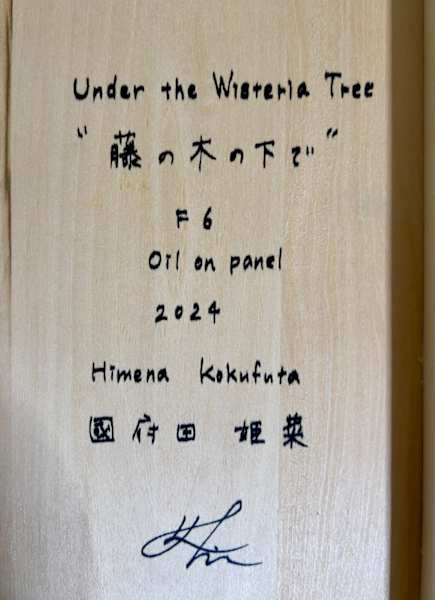 Under the Wisteria Tree
"藤の木の下で"
F6
Oil on panel
2024
Himena Kokufuta
國府田 姫菜